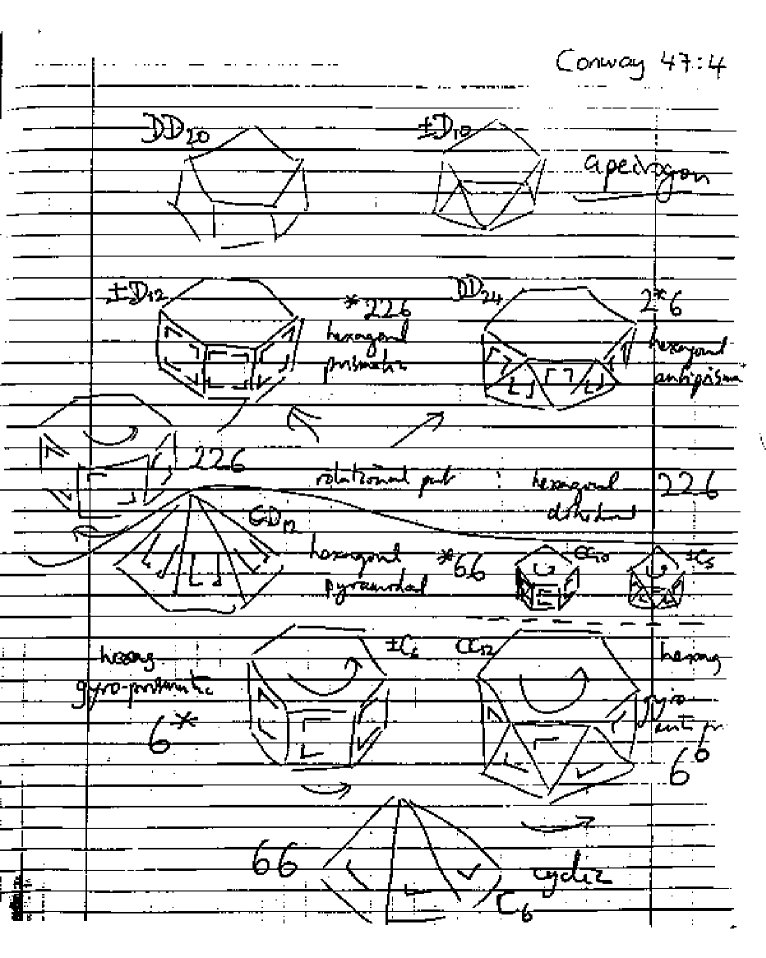 Conway 47:4
DD20
±D10
apeirogon
±D12
*226
hexagonal
prismatic
DD24
2*6
hexagonal
antiprism
226
rotational part : hexagonal 226
dihedral
CD12
hexagonal
pyramidal
*66
CC10
±C5
hexag
gyro-prismatic
6*
±C6
CC12
hexag
gyro
anti pr
6°
66
cyclic
C6